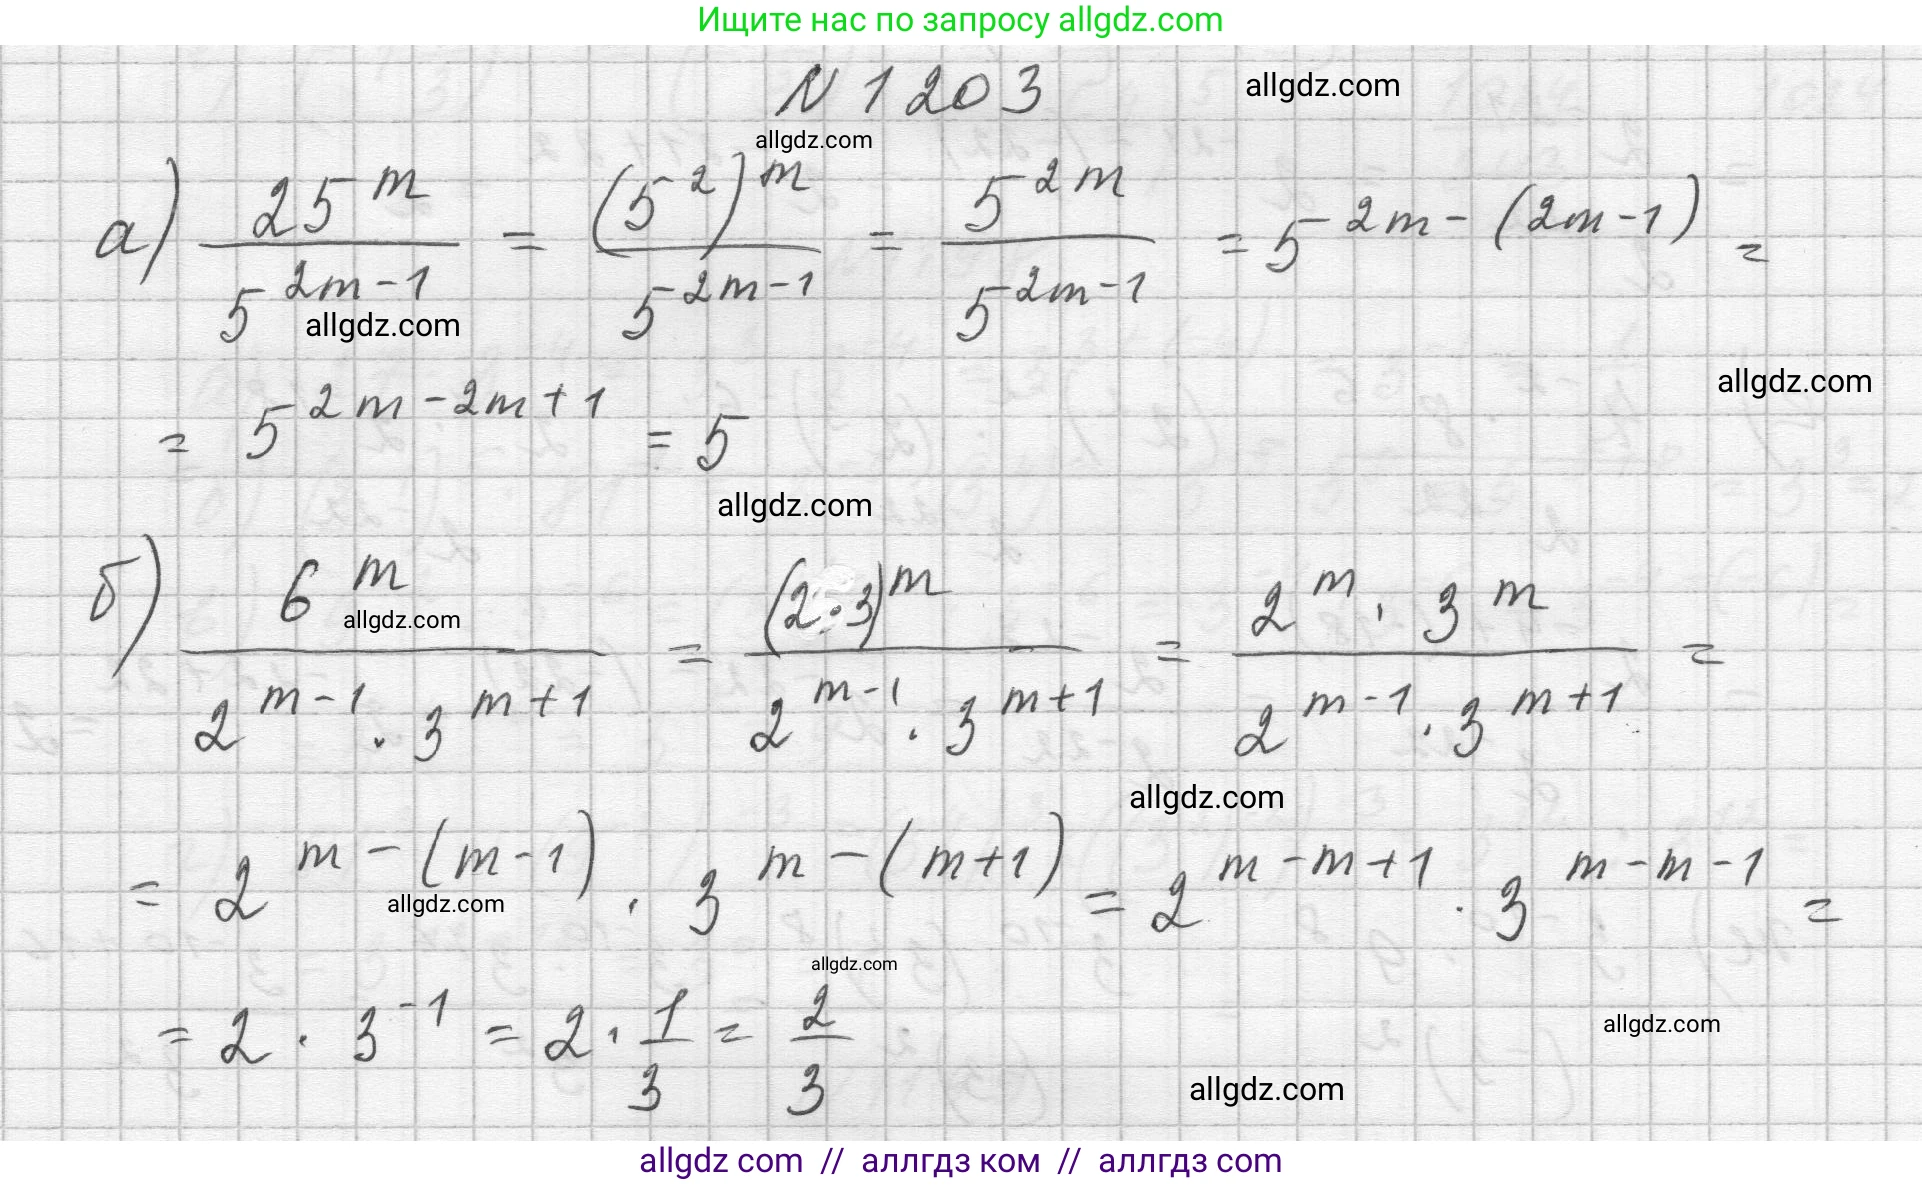 Ищите нас по запросу allgdz.com
N 1203 allgdz.com
allgdz.com
а) 25^m / 5^(2m-1) = (5^2)^m / 5^(2m-1) = 5^(2m) / 5^(2m-1) = 5^(2m-(2m-1)) =
allgdz.com
allgdz.com
= 5^(2m-2m+1) = 5
allgdz.com
б) 6^m / (2^(m-1) · 3^(m+1)) = (2·3)^m / (2^(m-1) · 3^(m+1)) = (2^m · 3^m) / (2^(m-1) · 3^(m+1)) =
allgdz.com
allgdz.com
= 2^(m-(m-1)) · 3^(m-(m+1)) = 2^(m-m+1) · 3^(m-m-1) =
allgdz.com
allgdz.com
= 2 · 3^(-1) = 2 · 1/3 = 2/3
allgdz.com
allgdz.com
allgdz com // аллгдз ком // аллгдз com